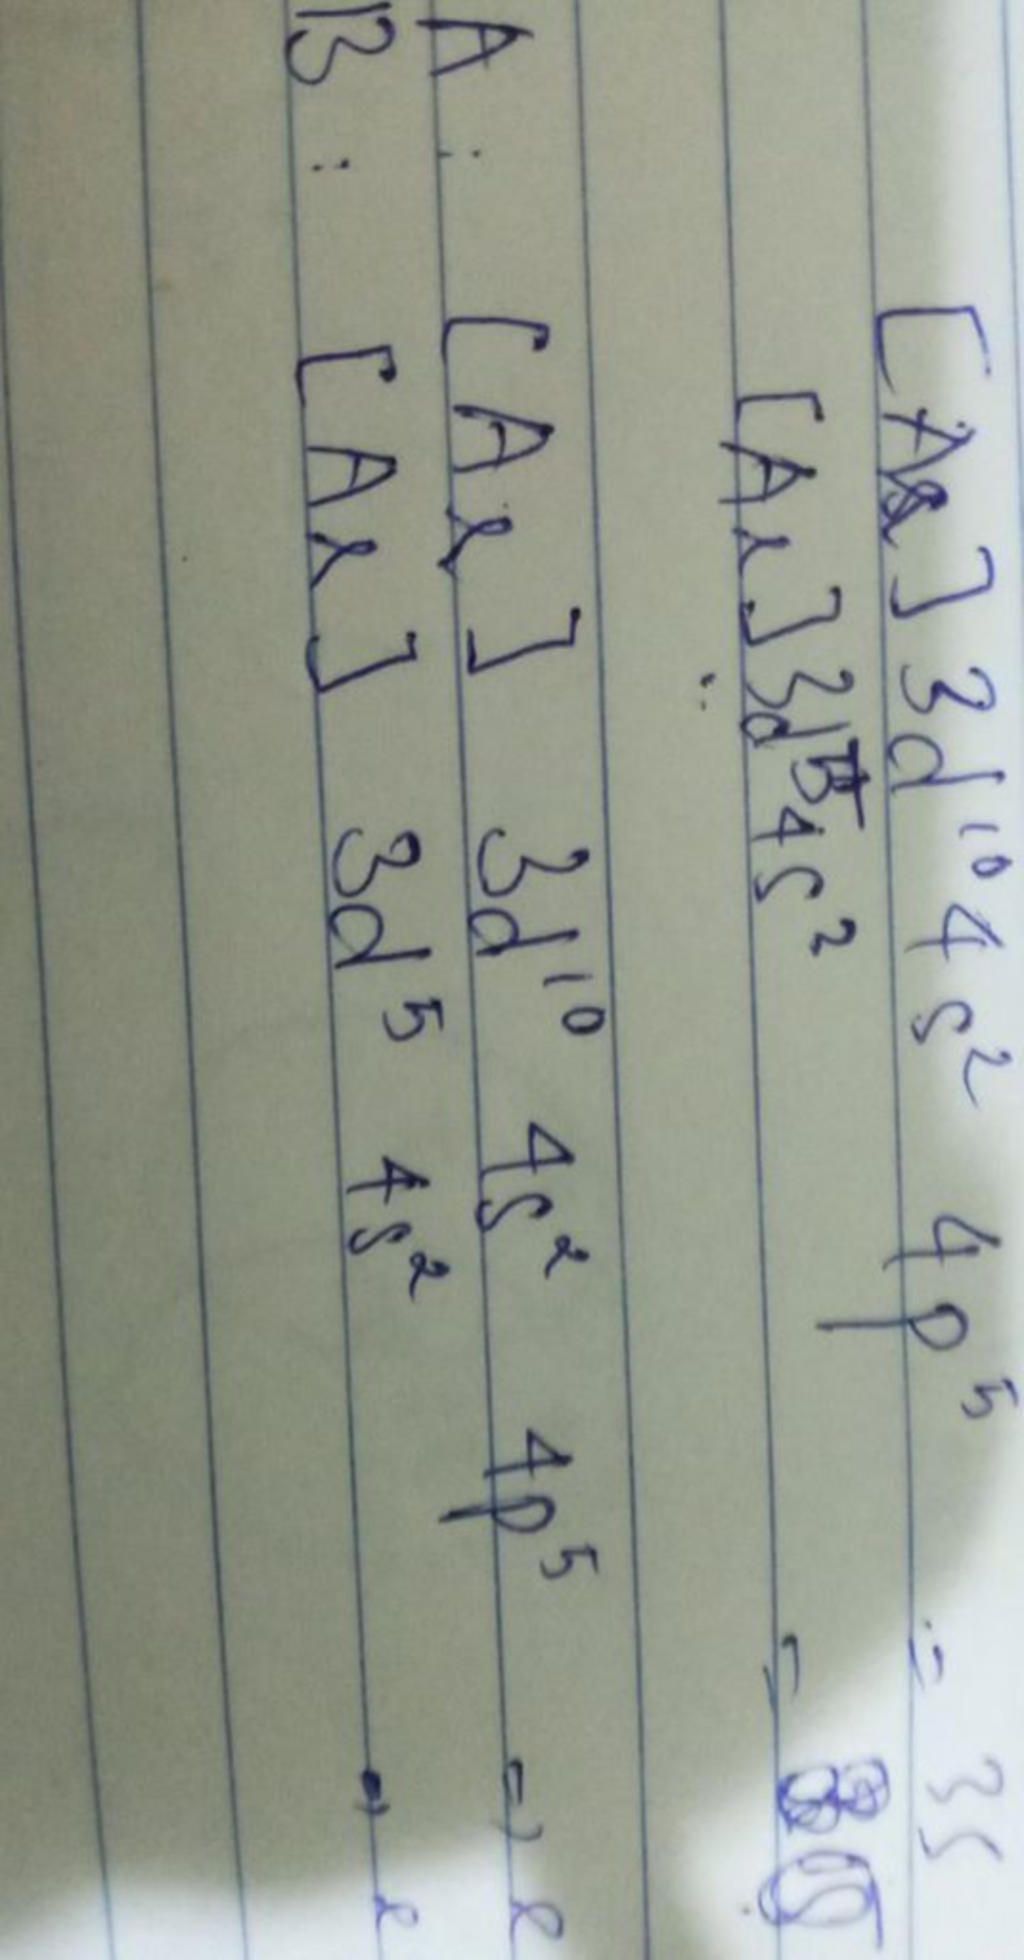 [Ar] 3d¹⁰ 4s² 4p⁵ = 35
[Ar] 3d⁵ 4s² =
A : [Ar] 3d¹⁰ 4s² 4p⁵ =)
B : [Ar] 3d⁵ 4s²